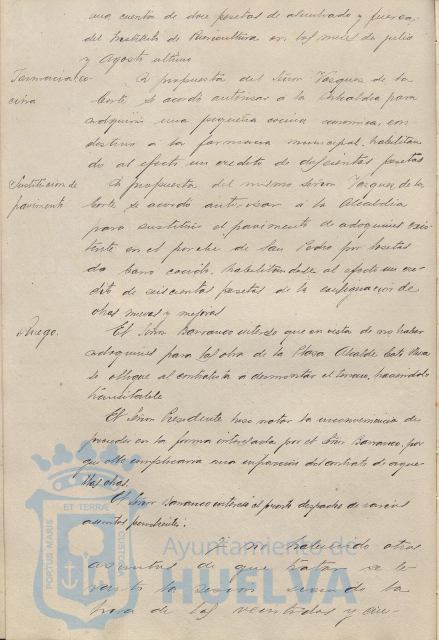 una cuenta de doce pesetas de alumbrado y fuerza
del Instituto de Puericultura en los meses de julio
y Agosto ultimo
Farmacia co-
cina
A propuesta del Señor Vazquez de la
Corte se acordó autorizar a la Alcaldia para
adquirir una pequeña cocina económica con
destino a la farmacia municipal, habilitan
do al efecto un credito de doscientas pesetas
Sustitucion de
pavimento
A propuesta del mismo Señor Vazquez de la
Corte, se acordó autorizar a la Alcaldia
para sustituir el pavimento de adoquines exis
tente en el porche de San Pedro por losetas
de barro cocido, habilitandose al efecto un cre
dito de seiscientas pesetas de la consignacion de
obras nuevas y mejoras
Ruego.
El Señor Barranco interesó que en vista de no haber
adoquines para la obra de la Plaza Alcalde Coto Mora
se obligue al contratista a desmontar el terreno, haciendolo
transitable
El Señor Presidente hizo notar la inconveniencia de
proceder en la forma interesada por el Señor Barranco, por
que ello implicaria una infraccion del contrato de aque
llas obras.
El Señor Barranco interesó el pronto despacho de varios
asuntos pendientes.
Y no habiendo otros
asuntos de que tratar se le-
vantó la sesion siendo la
hora de las veintidos y cua-
PORTUS MARIS
ET TERRÆ
CUSTODIA
Ayuntamiento de
HUELVA